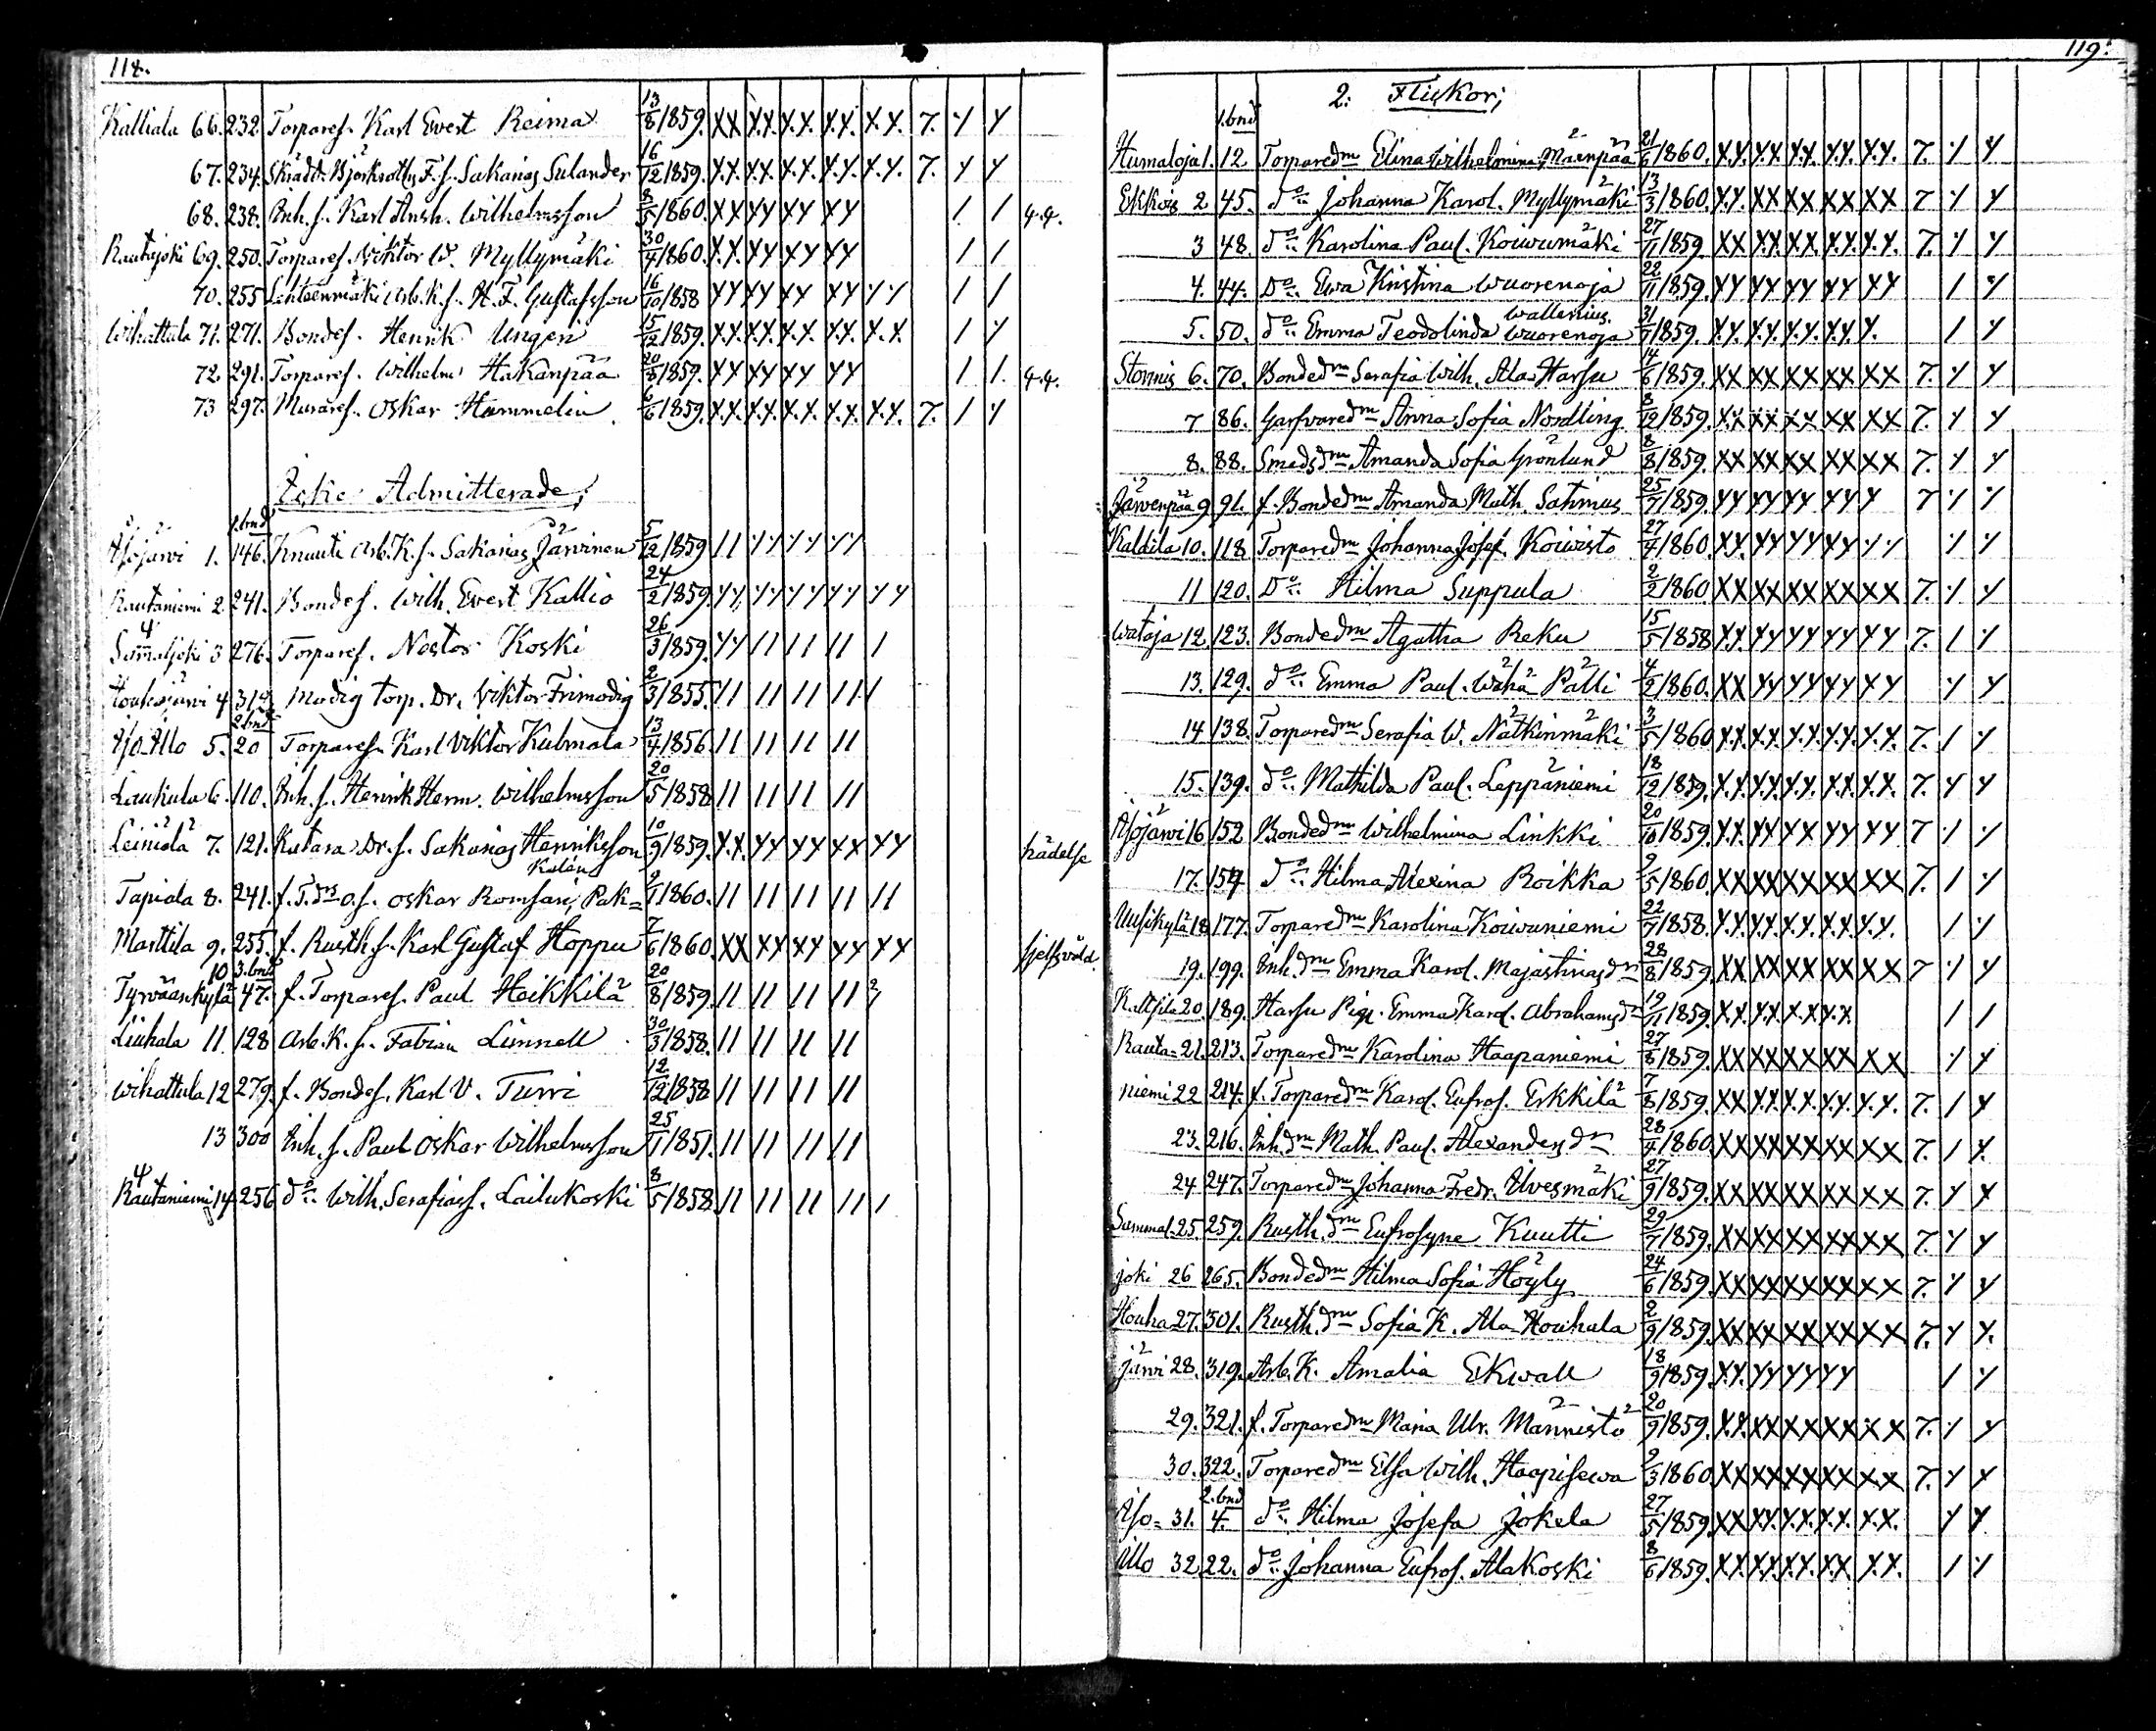 118.
Kalliala 66. 232. Torparef. Karl Evert Reima 13/8 1859. XX X.X. X.X. X.X. X.X. 7. Y Y
67. 234. Skrädd. Björkrotls F.s. Sakarias Sulander 16/12 1859. X.X. X.X. X.X. X.X. X.X. 7. Y Y
68. 238. Inh.s. Karl Ansh. Wilhelmsson 8/5 1860. XX YY XX YY 1 1 4.4.
Rautajoki 69. 250. Torparef. Viktor W. Myllymäki 30/4 1860. X.X. XX YY YY 1 1
70. 255 Lehteenmäki Arb.K.s. K.F. Gustafsson 16/10 1858 YY YY YY YY YY 1 1
Wihattula 71. 271. Bondes. Henrik Ungeri 15/12 1859. X.X. X.X. X.X. X.X. X.X. 1 Y
72. 291. Torparef. Wilhelm Hakanpää 20/8 1859. XX YY XX YY 1 1. 4.4.
73 297. Muraref. Oskar Hammelin 6/6 1859. X.X. X.X. X.X. X.X. X.X. 7. 1 Y
Icke Admitterade;
1.bnd
Asojärvi 1. 146. Knuuti Arb.K.s. Sakarias Järvinen 5/12 1859 11 YY YY YY
Rautaniemi 2. 241. Bondes. Wilh. Evert Kallio 24/2 1859. YY YY YY YY YY
Sammaljoki 3 276. Torparef. Nestor Koski 26/3 1859. YY 11 11 11 1
Houhajärvi 4 314 Modig torp. Dr. Viktor Frimodig 2/3 1855. 11 11 11 11 1
2.bnd
Aso-Allo 5. 20 Torparef. Karl Viktor Kulmala 13/4 1856. 11 11 11 11
Laukula 6. 110. Inh.s. Henrik Herm. Wilhelmsson 20/5 1858 11 11 11 11
Leiniälä 7. 121. Kutara Dr.s. Sakarias Henriksson 10/9 1859. X.X. YY YY XX YY hädelse
Kalén
Tapiala 8. 241. f.T.dmo.s. Oskar Romsari, Pak= 9/1 1860. 11 11 11 11 11
Marttila 9. 255. f. Rusth.s. Karl Gustaf Hoppu 7/6 1860. XX XX XX YY YY sjelfsvåld.
3.bnd
Tyrväänkylä 10 47. f. Torparef. Paul Heikkilä 20/8 1859. 11 11 11 11
Liuhala 11. 128 Arb.K.s. Fabian Linnell 30/3 1858. 11 11 11 11
Wihattula 12 279. f. Bondes. Karl V. Turri 12/12 1858 11 11 11 11
13 300 Inh.s. Paul Oskar Wilhelmsson 25/11 1851. 11 11 11 11
Rautaniemi 14 256 do. Wilh. Serafiass. Lailukoski 8/5 1858. 11 11 11 11 1
119.
2. Flickor;
1.bnd
Humaloja 1. 12. Torparedm Elina Wilhelmina Määnpää 21/6 1860. X.Y. Y.X Y.Y. X.Y. Y.Y. 7. Y Y
Ekkois 2 45. do. Johanna Karol. Myllymäki 13/3 1860. X.Y. XX XX XX XX 7 Y Y
3 48. do. Karolina Paul. Koiwumäki 27/11 1859. XX X.X. XX X.Y. X.Y. 7. Y Y
4. 44. Do. Ewa Kristina Wuorenoja 22/11 1859. YY YY YY YY YY 1 Y
Wallenius.
5. 50. do. Emma Teodolinda Wuorenoja 31/7 1859. X.Y. X.Y. Y.Y. X.Y. Y. 1 Y
Stormis 6. 70. Bondedm Serafia Wilh. Ala-Harsu 14/6 1859. XX XX XX XX XX 7. Y Y
7 86. Garfvaredm Anna Sofia Nordling 8/12 1859. X.X XX XX XX XX 7. Y Y
8. 88. Smedsdm Amanda Sofia Grönlund 8/8 1859. XX XX XX XX XX 7. Y Y
Järvenpää 9 91. f. Bondedm Amanda Math. Satimus 25/7 1859. YY YY YY YY Y 7 Y Y
Kaldila 10. 118 Torparedm Johanna Josef. Koiwisto 27/4 1860. X.Y. YY YY YY YY Y Y
11 120. Do. Hilma Suppula 2/2 1860. XX XX XX XX XX 7. Y Y
Wataja 12. 123. Bondedm Agatha Reku 15/5 1858 Y.Y. YY YY YY YY 7. 1 Y
13. 129. do. Emma Paul. Wähä Pälli 4/2 1860. XX YY YY YY YY Y Y
14 138. Torparedm Serafia W. Nätkinmäki 3/5 1860 X.Y. X.X. Y.Y. Y.Y. Y.Y. 7. 1 Y
15. 139. do. Mathilda Paul. Leppäniemi 18/12 1859. X.Y. X.Y. X.Y. X.X. X.X. 7. Y Y
Asojärvi 16 152 Bondedm Wilhelmina Linkki 20/10 1859. X.Y. YY YX YY YY 7 Y Y
17. 154 do. Hilma Alexina Roikka 9/5 1860. XX XX XX XX XX 7. 1 Y
Uusikylä 18 177. Torparedm Karolina Koiwuniemi 22/7 1858. Y.Y. X.Y. X.Y. X.Y. Y. 1 Y
19. 199. Inh.dm Emma Karol. Majastinasdr 28/8 1859. XX XX XX XX XX 7 Y Y
Kaltsila 20. 189. Harsu Pig. Emma Karol. Abrahamsdr 19/11 1859. X.Y. X.X. X.X. X. 1 1
Rauta= 21. 213. Torparedm Karolina Haapaniemi 27/6 1859. XX XX XX XX XX Y Y
niemi 22 214. f. Torparedm Karol. Eufros. Erkkilä 7/8 1859. XX X.Y. X.Y. Y.Y. Y.Y. 7. 1 Y
23. 216. Inh.dm Math. Paul. Alexandersdr 28/4 1860. XX XX XX XX XX 7. 1 Y.
24 247. Torparedm Johanna Fredr. Uvesmäki 27/9 1859. XX XX XX XX XX 7. Y Y
Sammal. 25. 259. Rusth.dm Eufrosyne Kuutti 29/7 1859. XX XX XX XX XX 7. Y Y
joki 26 265. Bondedm Hilma Sofia Höyly 24/6 1859. XX XX XX XX XX 7. Y Y
Houha 27. 301. Rusth.dm Sofia K. Ala-Houhala 2/9 1859. XX XX XX XX XX 7. Y Y.
järvi 28. 319. Arb.K. Amalia Ekwall 18/9 1859. X.Y. YY YY YY 1 Y
29. 321. f. Torparedm Maria Ulr. Männistö 20/9 1859. X.Y. XX XX XX XX 7. 1 Y
30. 322. Torparedm Elsa Wilh. Haapisewa 9/3 1860. XX XX XX XX XX 7. Y Y
2.bnd
Aso= 31. 4. do. Hilma Josefa Jokela 27/5 1859. XX XY. Y.X. X.X. X.X. Y Y
Allo 32 22. do. Johanna Eufros. Alakoski 8/6 1859. XX. X.Y. X.Y. XX XX. 1 Y